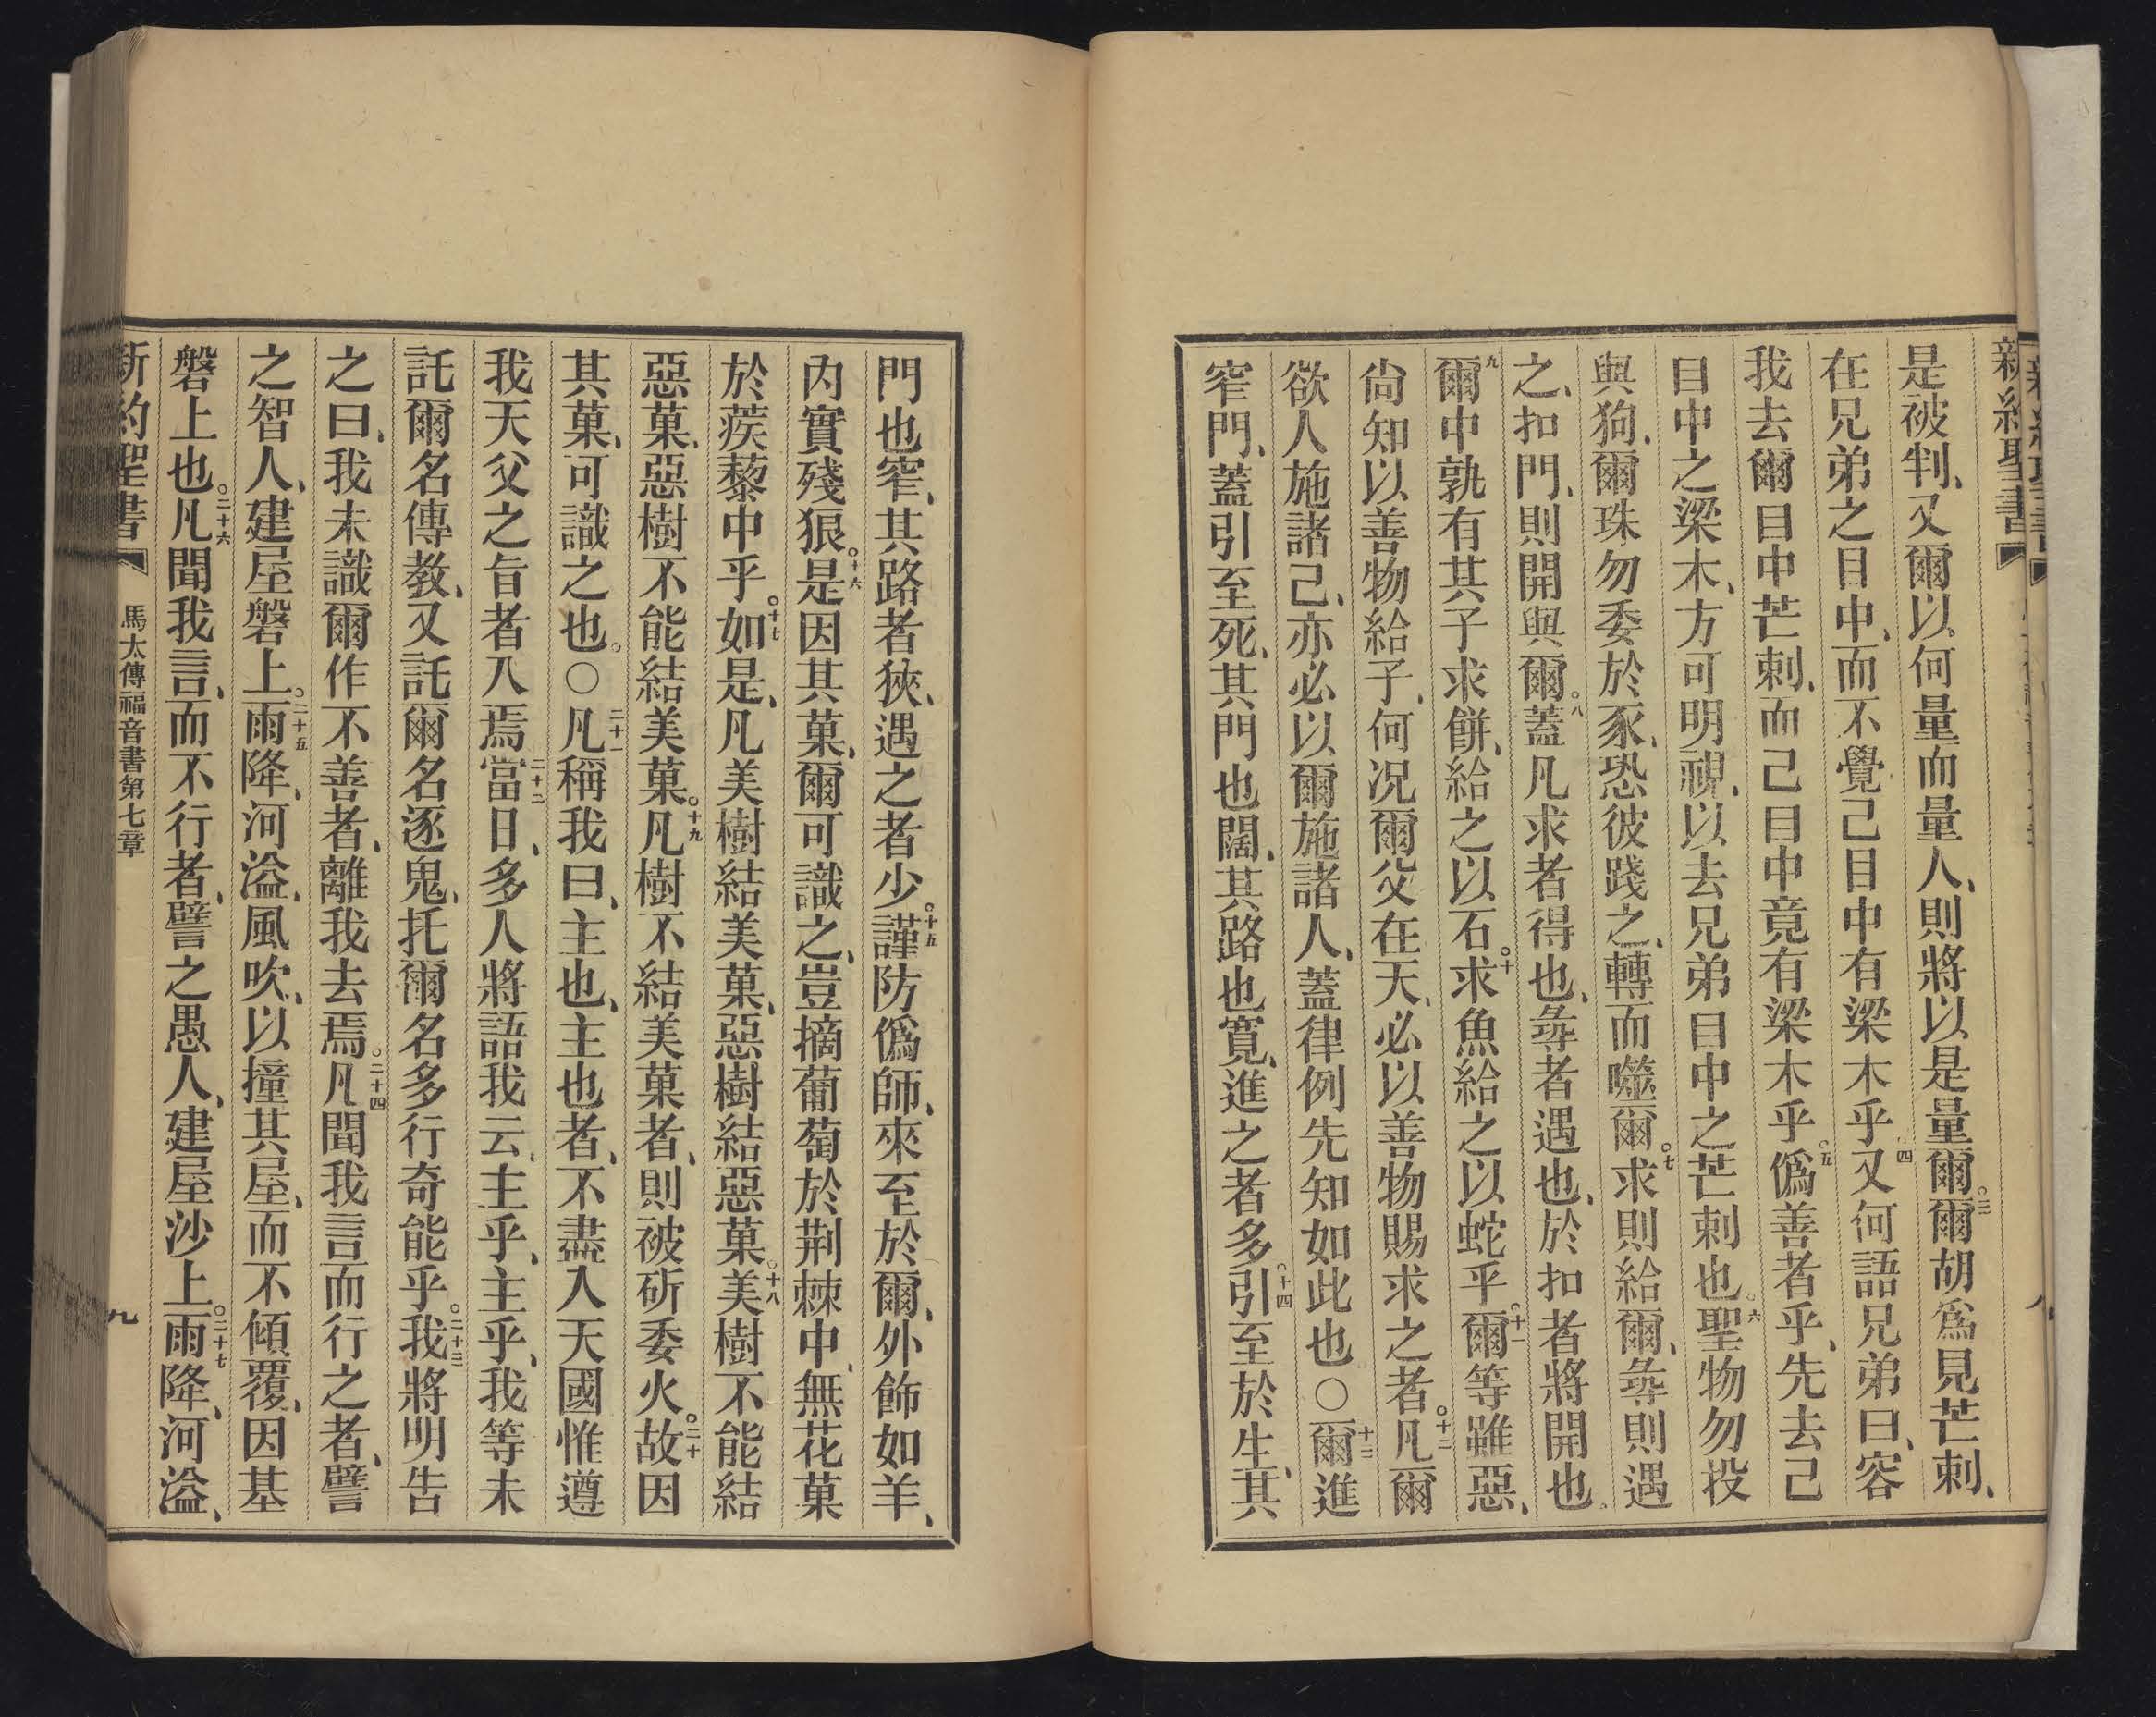 新約聖書
是被判、又爾以何量而量人、則將以是量爾。三爾胡爲見芒刺、
在兄弟之目中、而不覺己目中有梁木乎四又何語兄弟曰、容
我去爾目中芒刺、而己目中竟有梁木乎。五僞善者乎、先去己
目中之梁木、方可明視、以去兄弟目中之芒刺也。六聖物勿投
與狗、爾珠勿委於豕、恐彼踐之、轉而噬爾。七求則給爾、尋則遇
之、扣門、則開與爾。八蓋凡求者得也、尋者遇也、於扣者將開也。
九爾中孰有其子求餅、給之以石。十求魚給之以蛇乎。十一爾等雖惡、
尙知以善物給子、何况爾父在天、必以善物賜求之者。十二凡爾
欲人施諸己、亦必以爾施諸人、蓋律例先知如此也〇十三爾進
窄門、蓋引至死、其門也闊、其路也寬、進之者多。十四引至於生、其
門也窄、其路者狹、遇之者少。十五謹防僞師、來至於爾、外飾如羊、
內實殘狠。十六是因其菓、爾可識之、豈摘葡萄於荆棘中、無花菓
於蒺藜中乎。十七如是、凡美樹結美菓、惡樹結惡菓。十八美樹不能結
惡菓、惡樹不能結美菓。十九凡樹不結美菓者、則被斫委火。二十故因
其菓、可識之也。〇二十一凡稱我曰、主也、主也者、不盡入天國惟遵
我天父之旨者入焉二十二當日、多人將語我云、主乎、主乎、我等未
託爾名傳教、又託爾名逐鬼、托爾名多行奇能乎。二十三我將明告
之曰、我未識爾作不善者、離我去焉。二十四凡聞我言而行之者、譬
之智人、建屋磐上。二十五雨降、河溢、風吹、以撞其屋、而不傾覆、因基
磐上也。二十六凡聞我言、而不行者、譬之愚人、建屋沙上。二十七雨降、河溢、
新約聖書 馬太傳福音書第七章 九